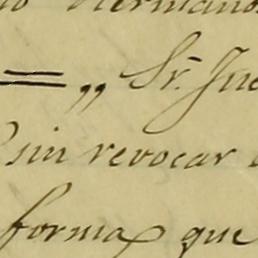 hermanos
= „ Sr. Jue
sin revocar
forma que